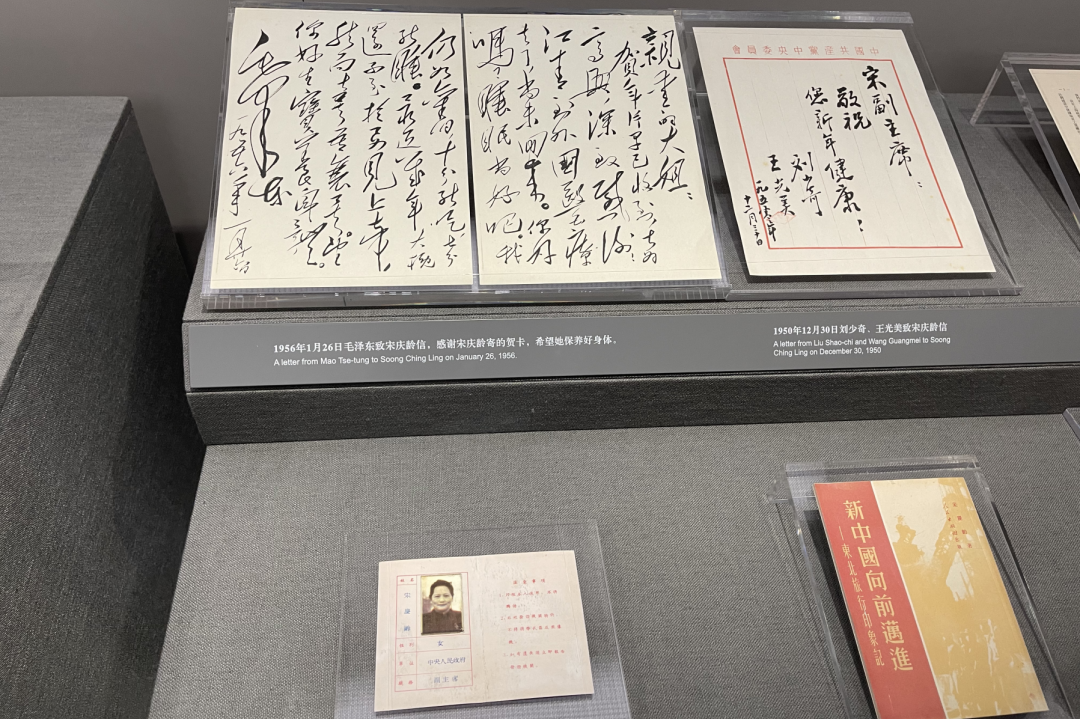 親愛的大姐：
賀年片早已收到，甚為
高興，深致感謝！
江青到外國醫療
去了，尚未回來。你好
嗎？睡眠尚好吧。我
仍如舊，十分能吃，七分
能睡。最近幾年大概
還不至於要見上帝，
然而甚矣吾衰矣。望
你好生寶養身體。
毛澤東
一九五六年一月廿六日
中國共產黨中央委員會
宋副主席：
敬祝
您新年健康！
刘少奇
王光美
一九五零年
十二月三十日
1956年1月26日毛泽东致宋庆龄信，感谢宋庆龄寄的贺卡，希望她保养好身体。
A letter from Mao Tse-tung to Soong Ching Ling on January 26, 1956.
1950年12月30日刘少奇、王光美致宋庆龄信
A letter from Liu Shao-chi and Wang Guangmei to Soong
Ching Ling on December 30, 1950
宋慶齡
女
中央人民政府
副主席
新中國向前邁進
——東北旅行印象記